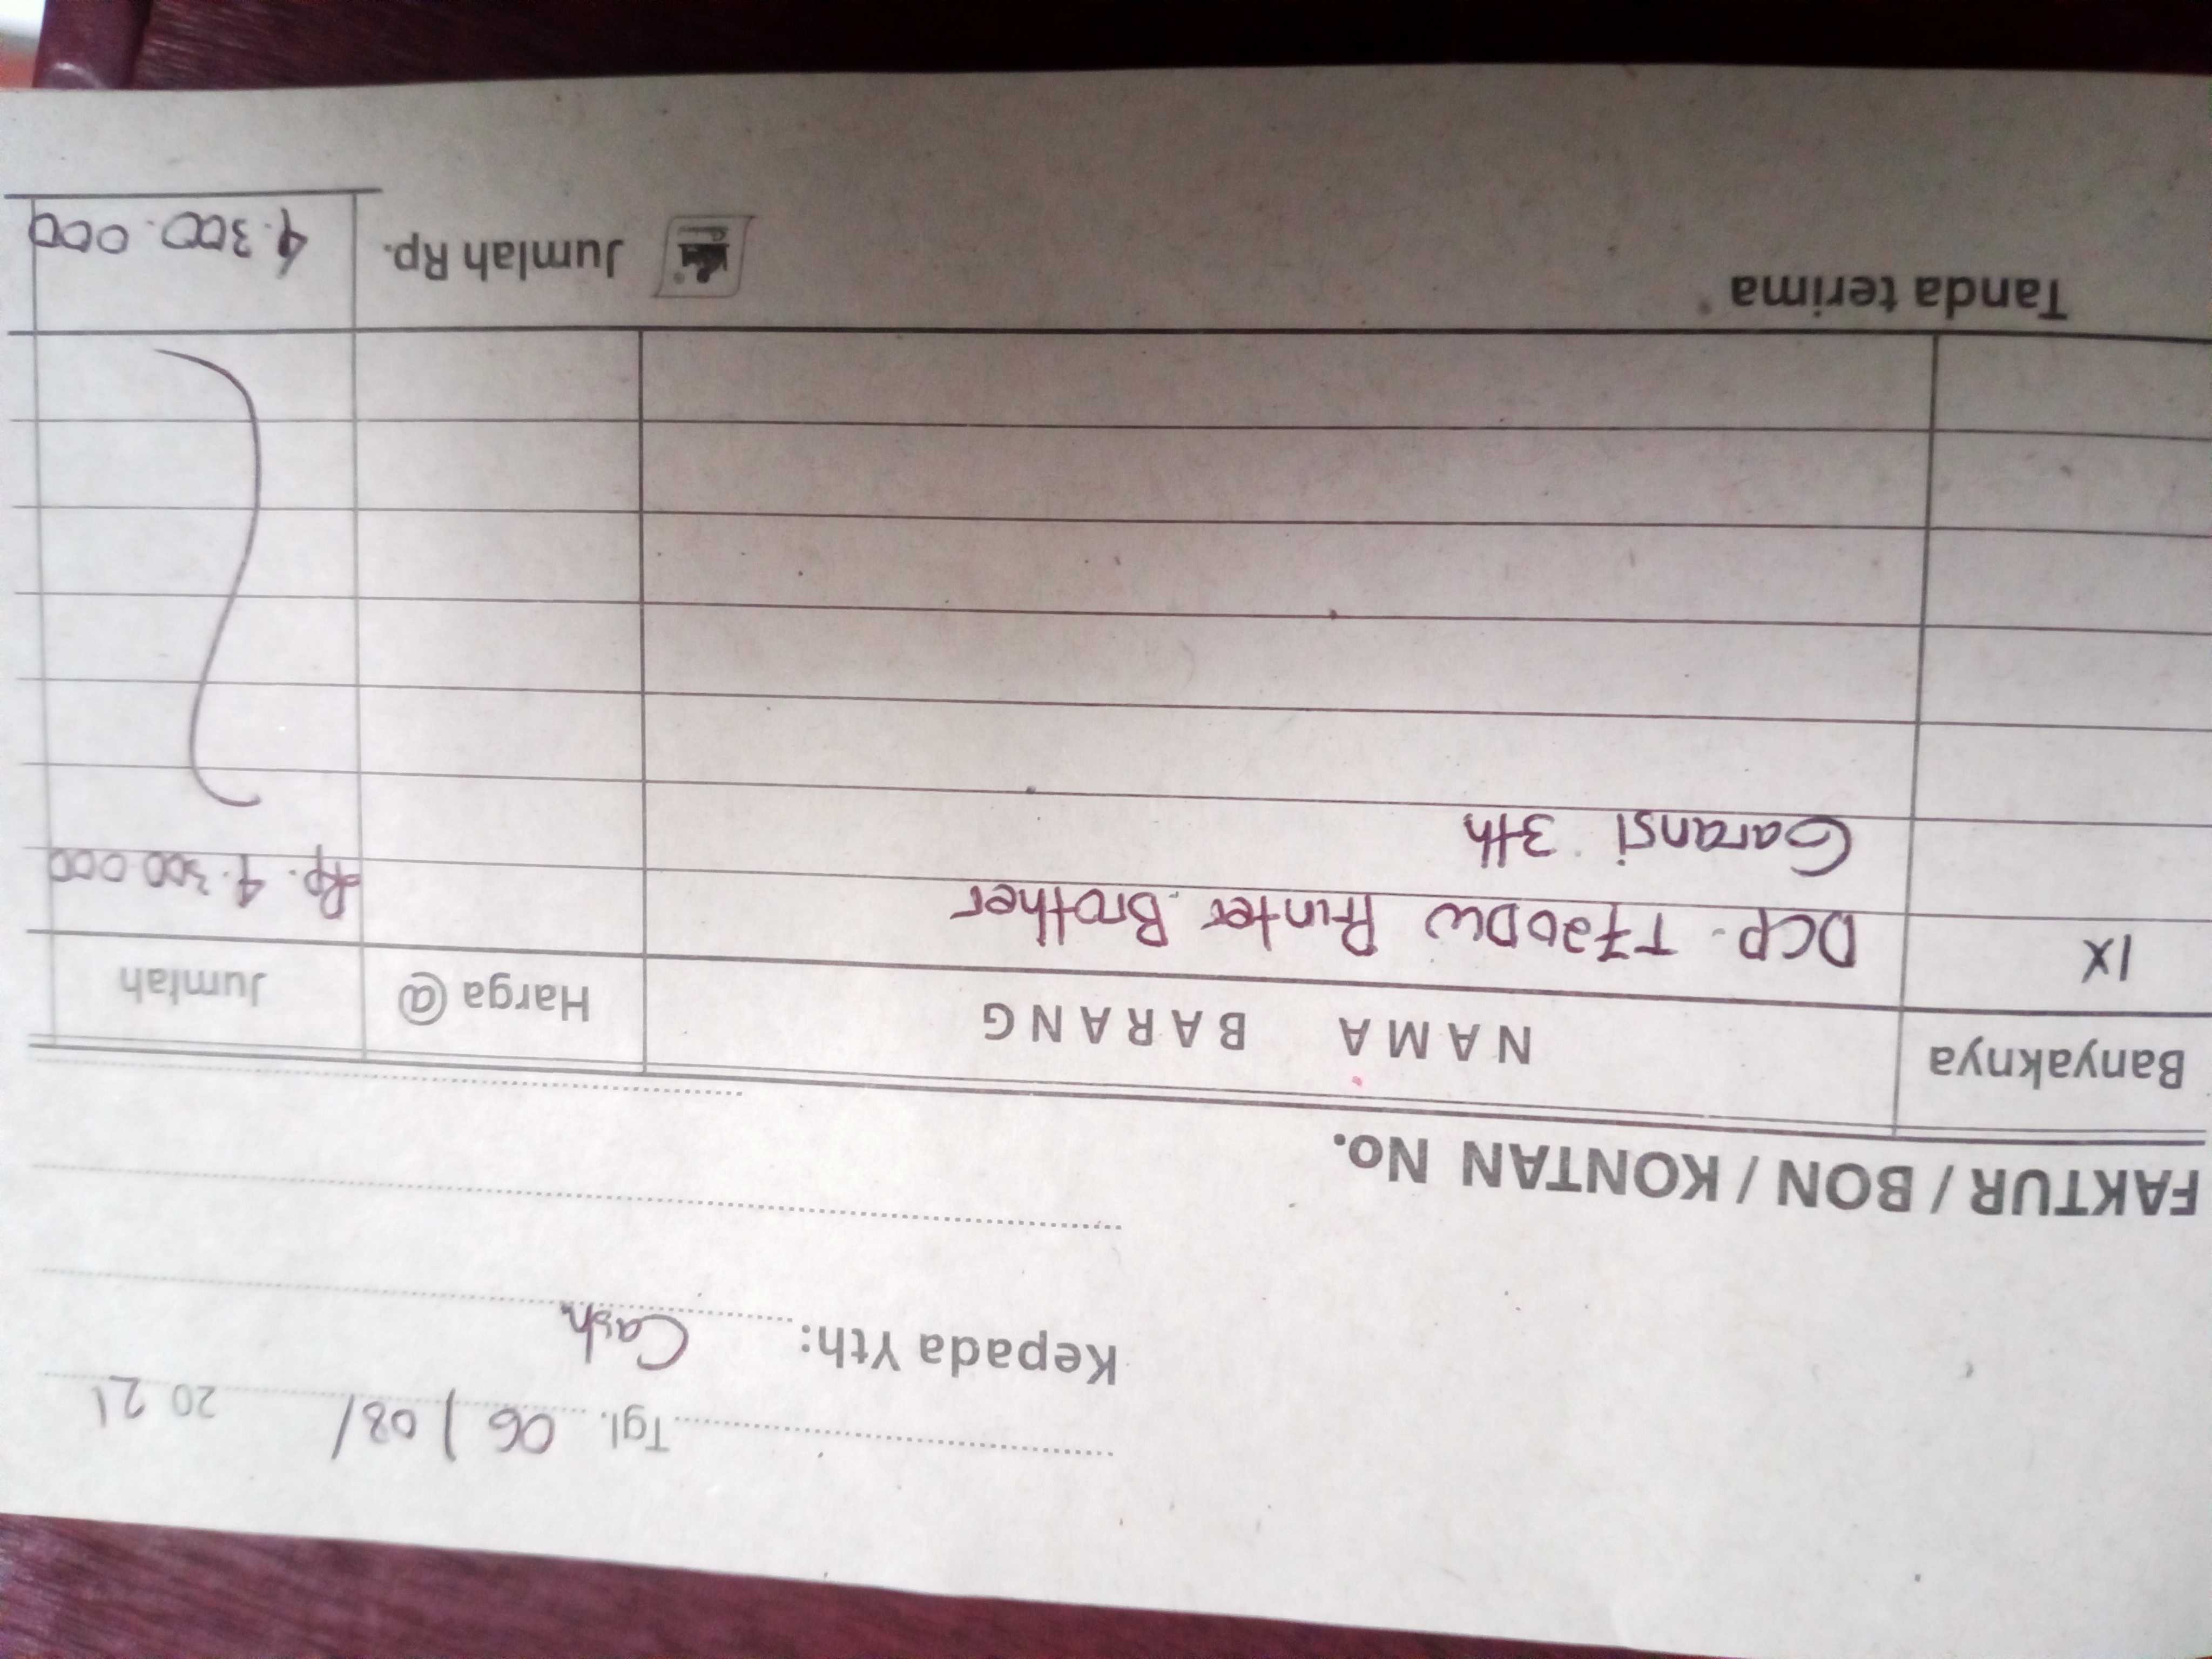 Tgl. 06 / 08 / 2021
Kepada Yth: Cash
FAKTUR / BON / KONTAN No.
Banyaknya NAMA BARANG Harga @ Jumlah
1X DCP - T720DW Printer Brother Rp. 4.300.000
Garansi 3th
Tanda terima Jumlah Rp. 4.300.000